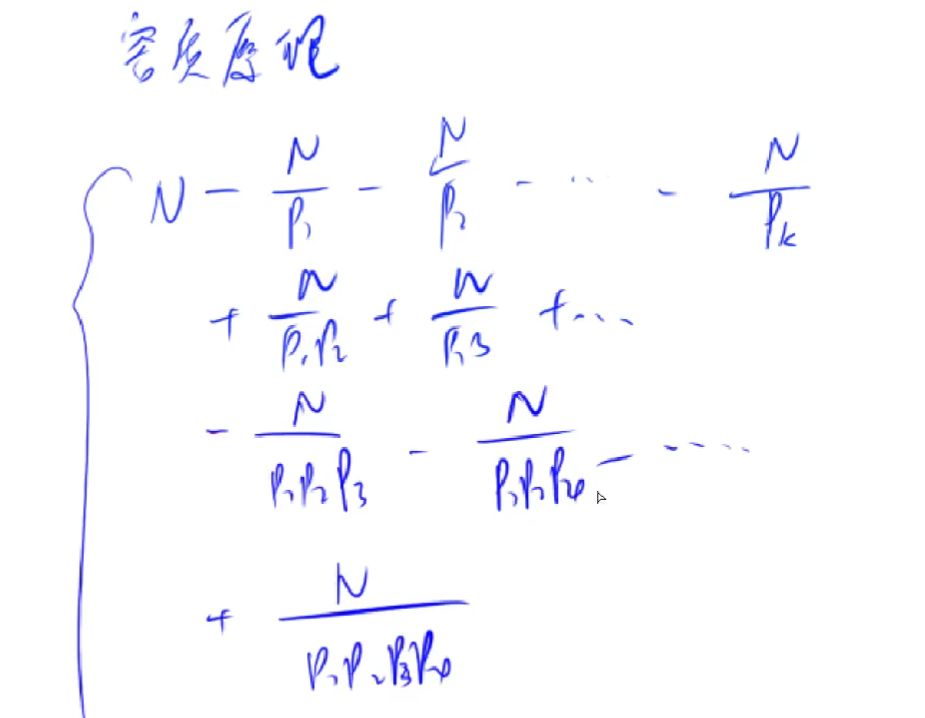 容质原理
N - N/P₁ - N/P₂ - ... - N/Pₖ
+ N/P₁P₂ + N/P₁₃ + ...
- N/P₁P₂P₃ - N/P₁P₂P₄ - ....
+ N/P₁P₂P₃P₄